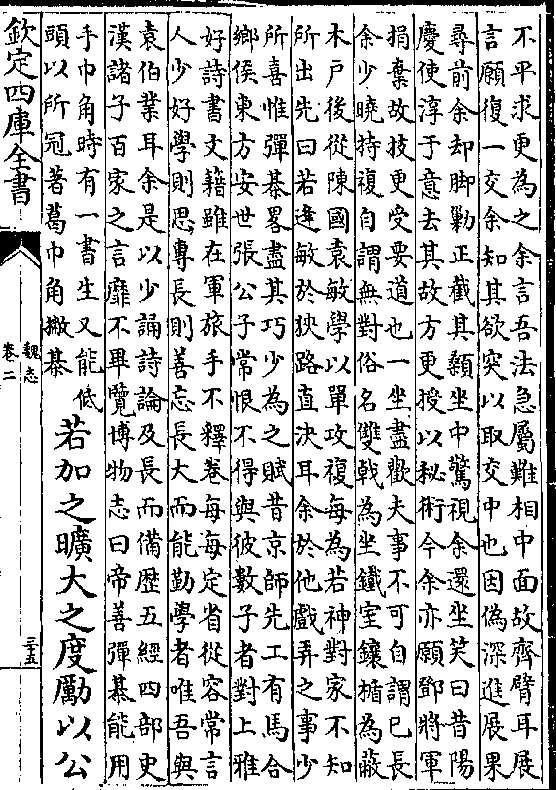 不平求更為之余言吾法急屬難相中面故齊臂耳展
言願復一交余知其欲突以取交中也因偽深進展果
尋前余却脚勦正截其顙坐中驚視余還坐笑曰昔陽
慶使淳于意去其故方更授以秘術今余亦願鄧將軍
捐棄故技更受要道也一坐盡歡夫事不可自謂己長
余少曉持複自謂無對俗名雙戟為坐鐵室鑲楯為蔽
木戶後從陳國袁敏學以單攻複每為若神對家不知
所出先曰若逢敏於狹路直決耳余於他戲弄之事少
所喜惟彈棊畧盡其巧少為之賦昔京師先工有馬合
鄉侯東方安世張公子常恨不得與彼數子者對上雅
好詩書文籍雖在軍旅手不釋卷每每定省從容常言
人少好學則思專長則善忘長大而能勤學者唯吾與
袁伯業耳余是以少誦詩論及長而備歷五經四部史
漢諸子百家之言靡不畢覽博物志曰帝善彈棊能用
手巾角時有一書生又能低
頭以所冠著葛巾角撇棊
若加之曠大之度勵以公
欽定四庫全書
魏志
卷二
三十五